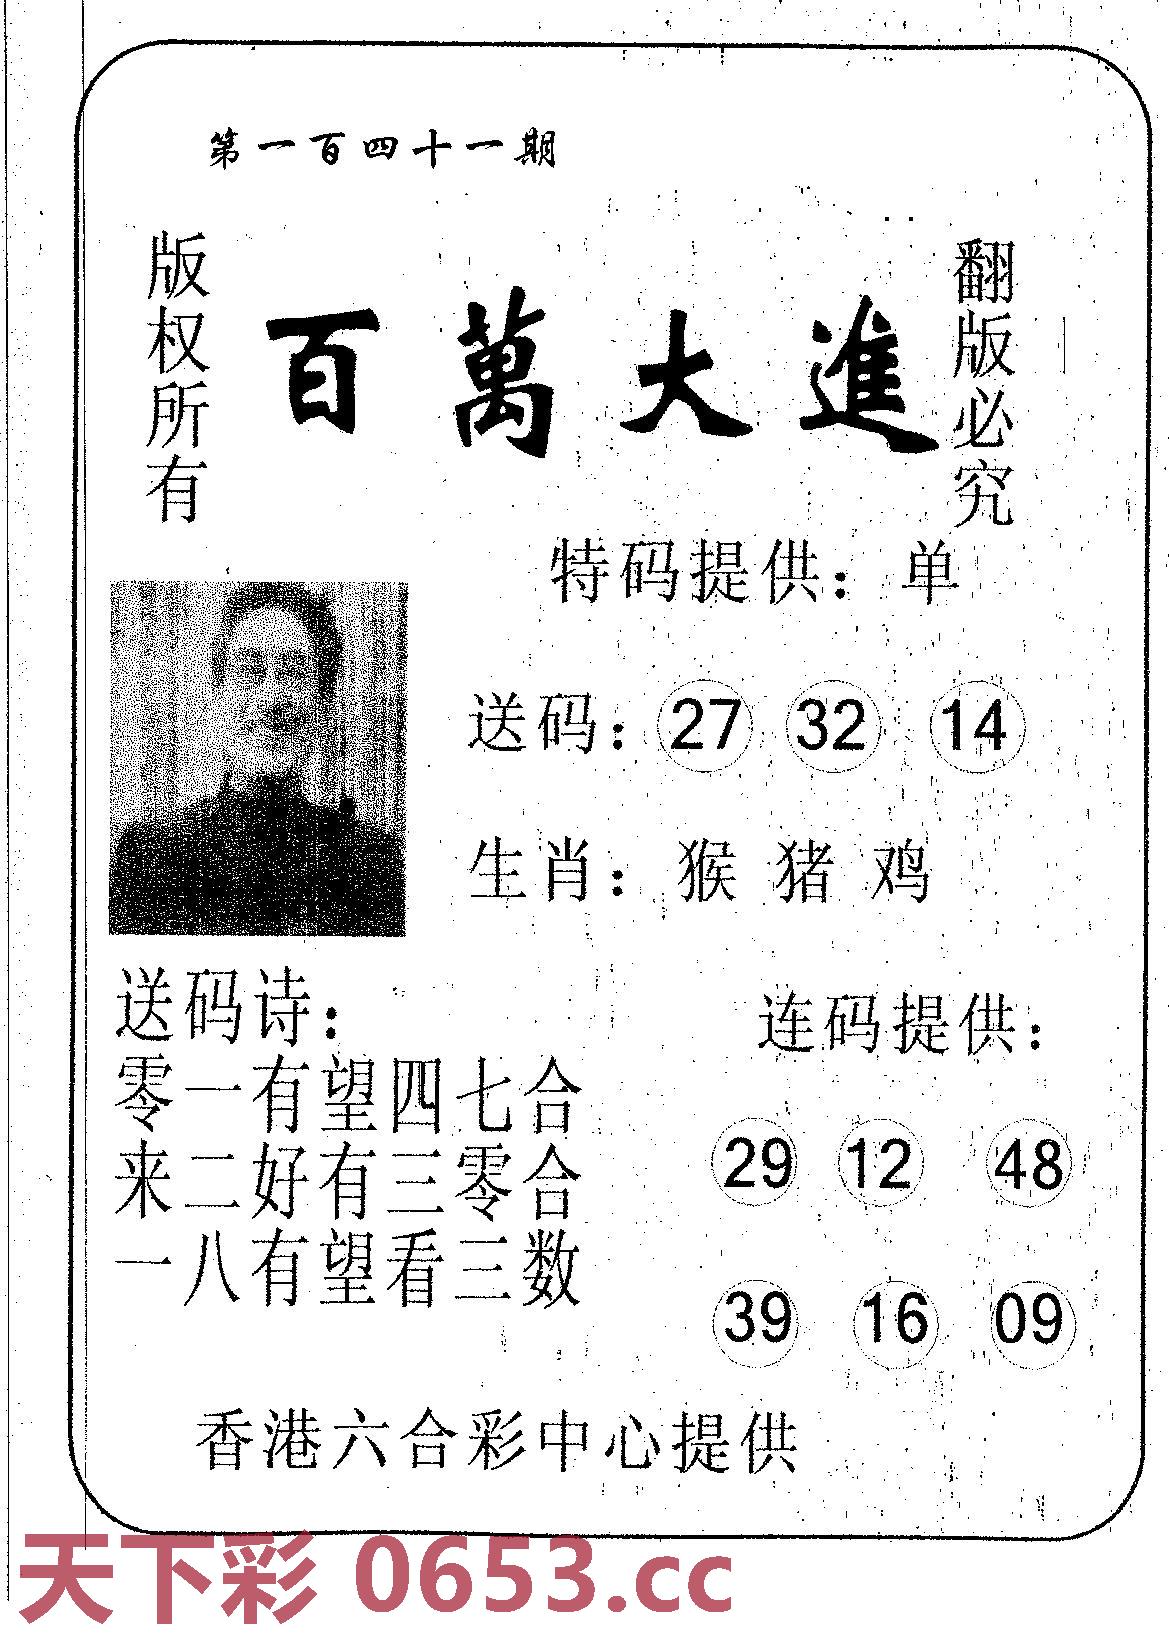 第一百四十一期
版权所有
百萬大進
翻版必究
特码提供：单
送码：27 32 14
生肖：猴 猪 鸡
送码诗：
零一有望四七合
来二好有三零合
一八有望看三数
连码提供：
29 12 48
39 16 09
香港六合彩中心提供
天下彩 0653.cc